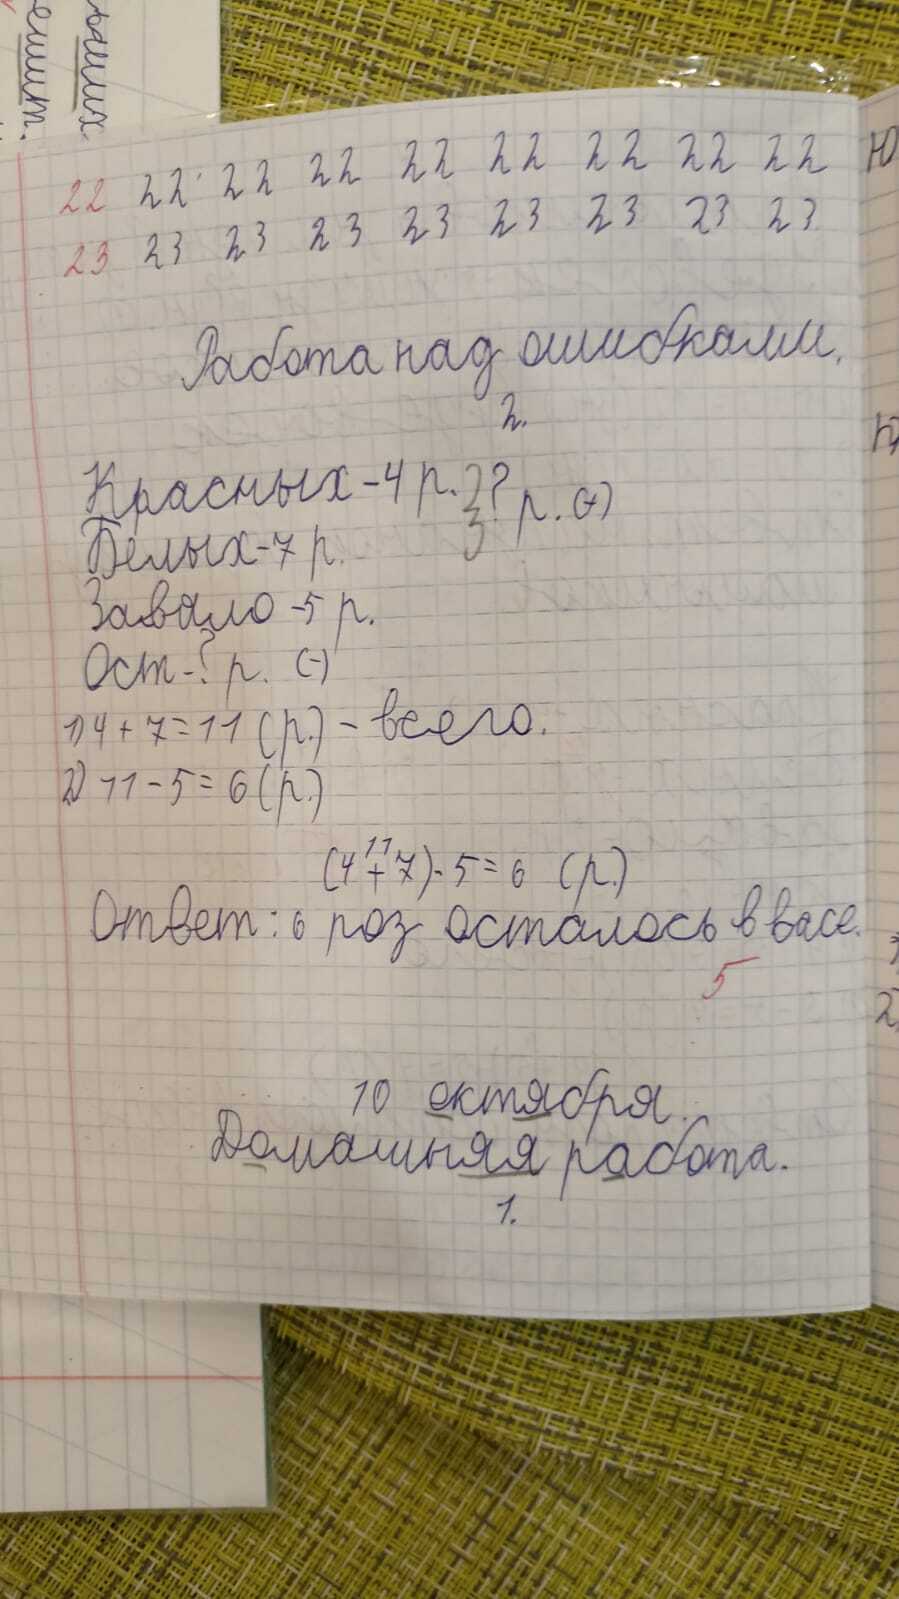 ьших
ешит.
22 22 22 22 22 22 22 22 22
23 23 23 23 23 23 23 23 23
Работа над ошибками.
2.
Красных - 4 р. } ? р. (+)
Белых - 7 р.
Завяло - 5 р.
Ост - ? р. (-)
1) 4 + 7 = 11 (р.) - всего.
2) 11 - 5 = 6 (р.)
11
(4 + 7) - 5 = 6 (р.)
Ответ: 6 роз осталось в васе.
5
10 октября.
Домашняя работа.
1.